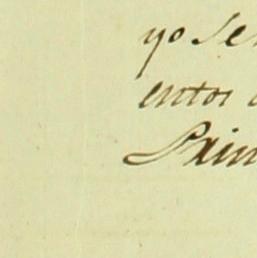 yo se
entos
Prin